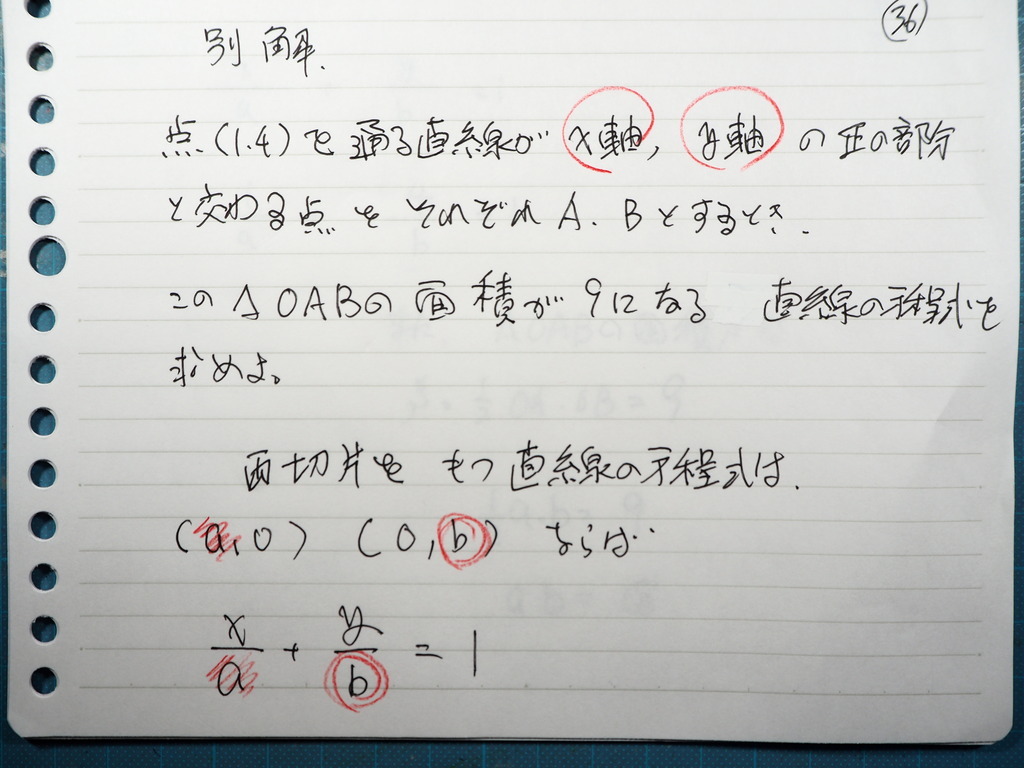 36
別解.
点(1.4)を通る直線が x軸, y軸 の正の部分
と交わる点を それぞれ A. B とするとき.
この △OABの面積が9になる 直線の方程式を
求めよ。
両切片を もつ直線の方程式は.
(a,0) (0,b) ならば
x/a + y/b = 1